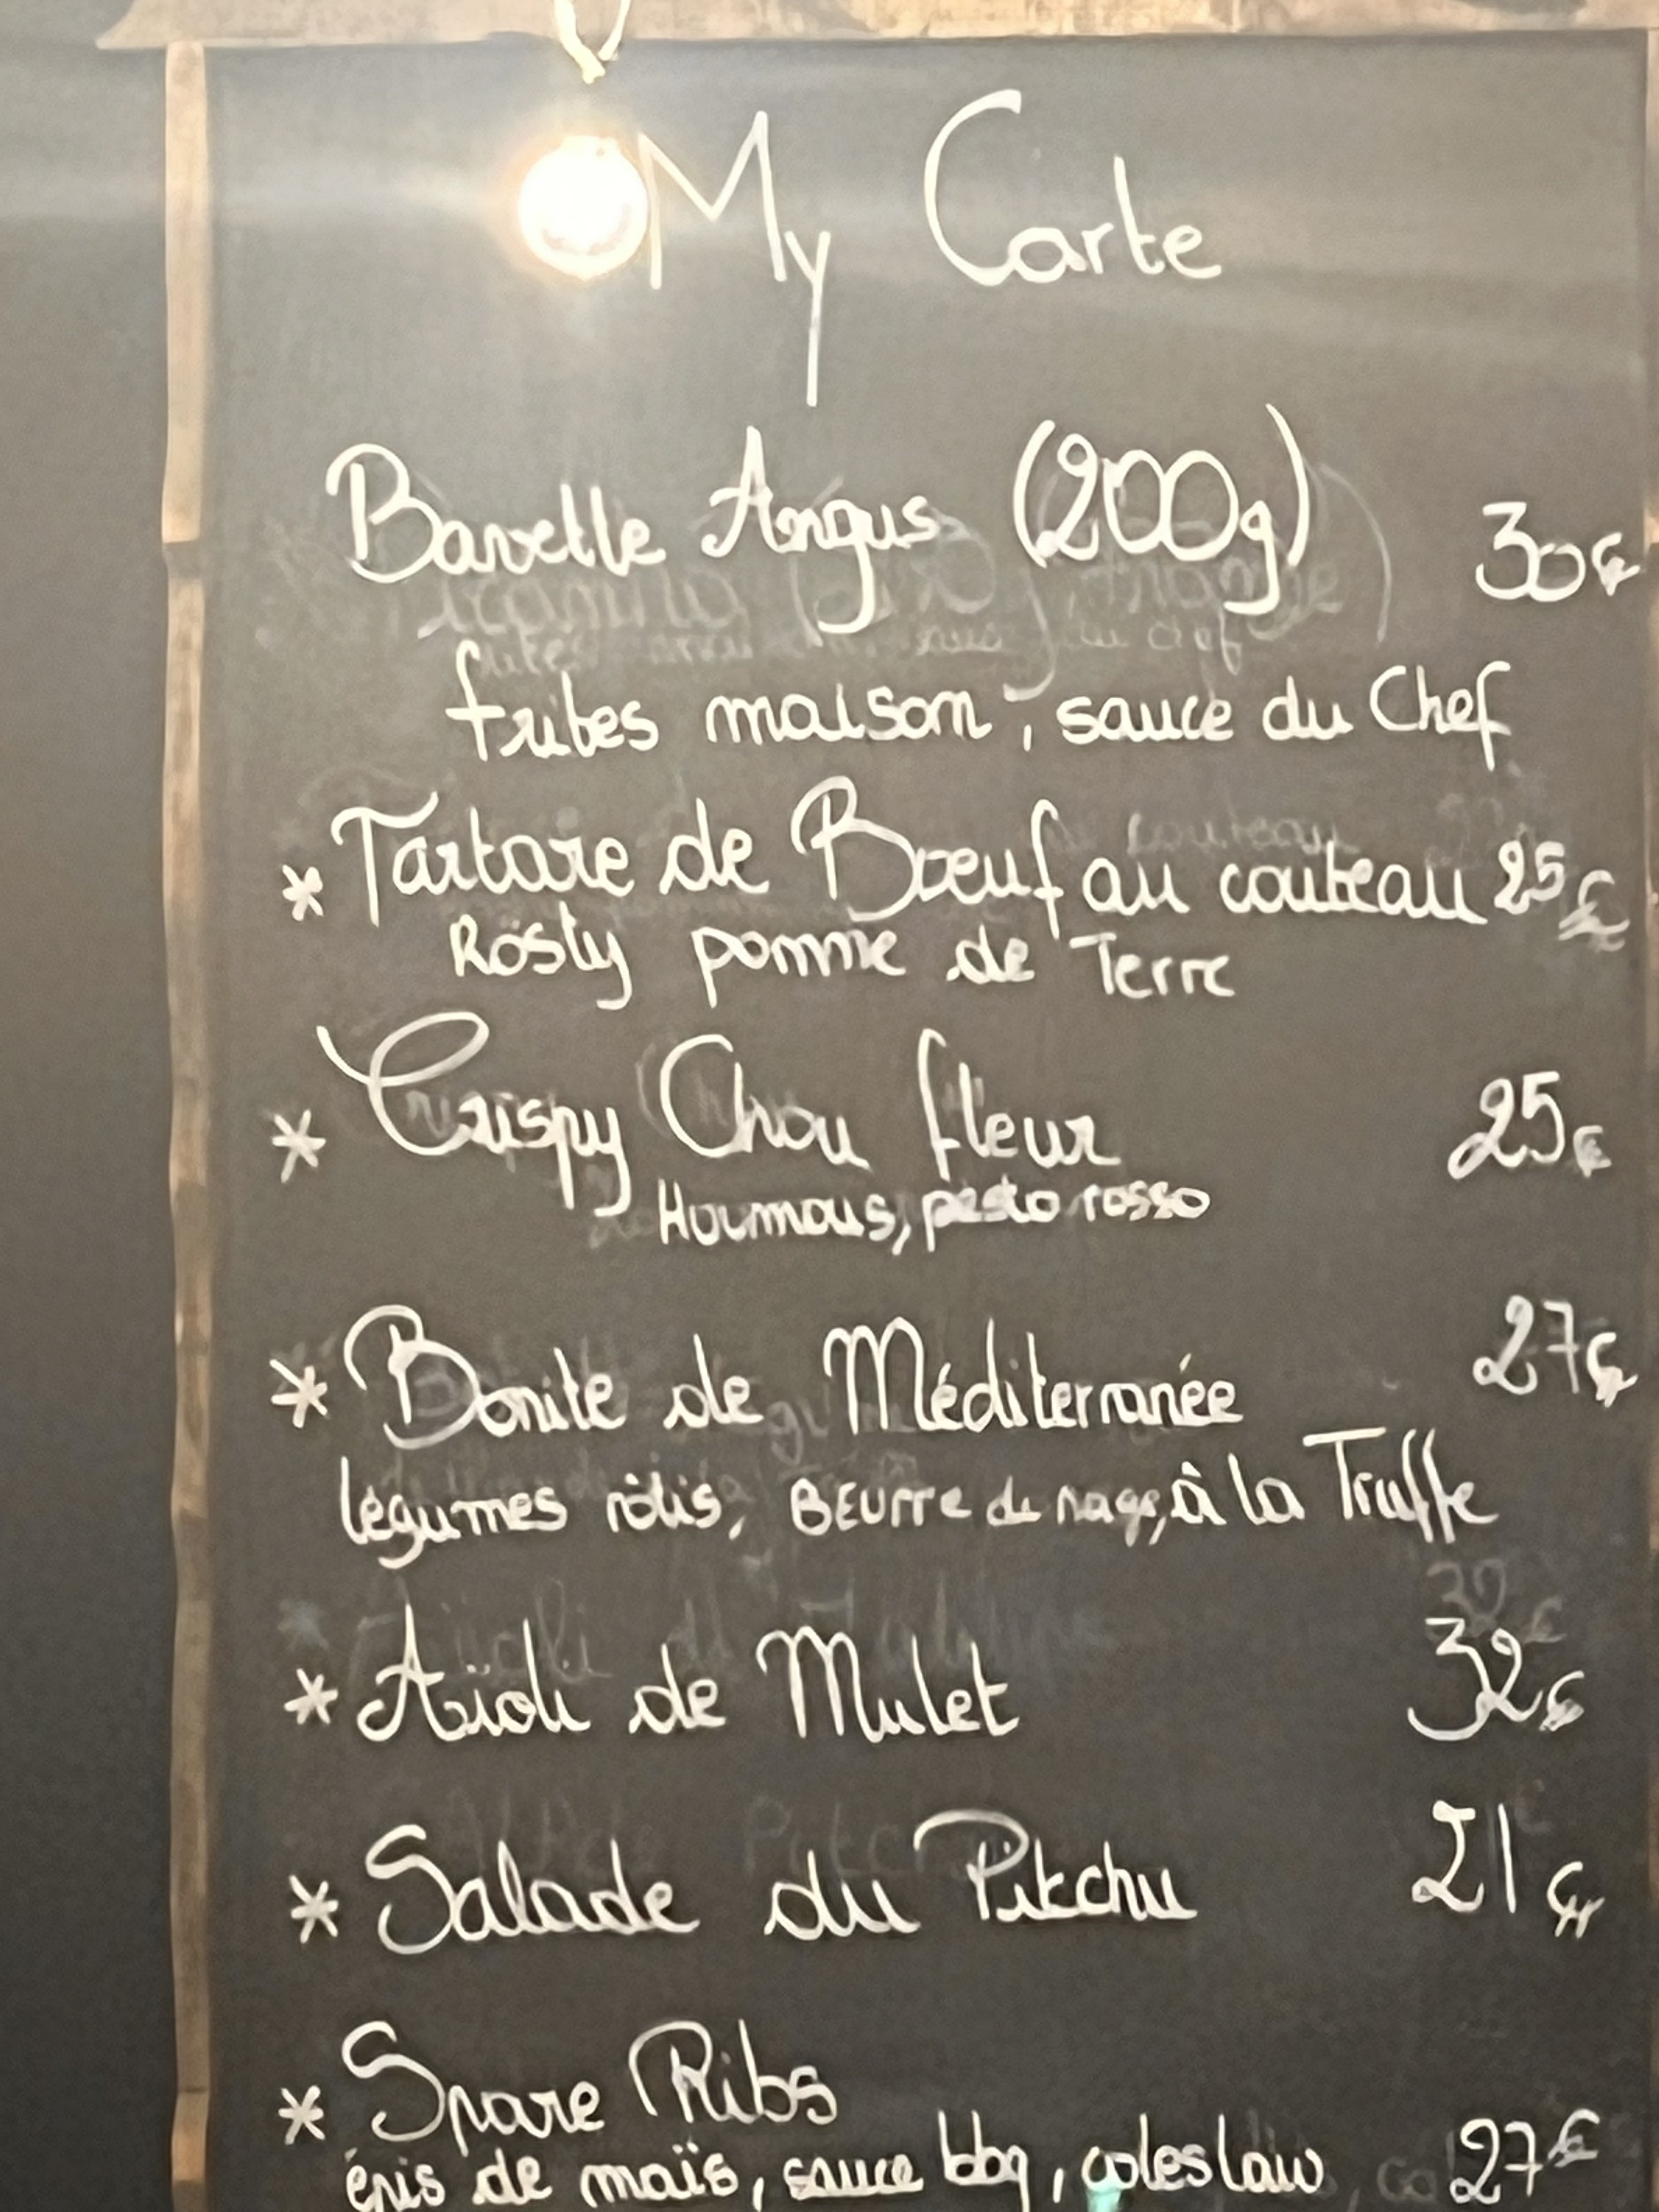 My Carte
Bavette Angus (200g) 30€
frites maison, sauce du Chef
* Tartare de Bœuf au couteau 25€
Rösty pomme de Terre
* Crispy Chou fleur 25€
Houmous, pesto rosso
* Bonite de Méditerranée 27€
légumes rôtis, BEURRE de nage, à la Truffe
* Aïoli de Mulet 32€
* Salade du Pitchu 21€
* Spare Ribs
épis de maïs, sauce bbq, coleslaw 27€